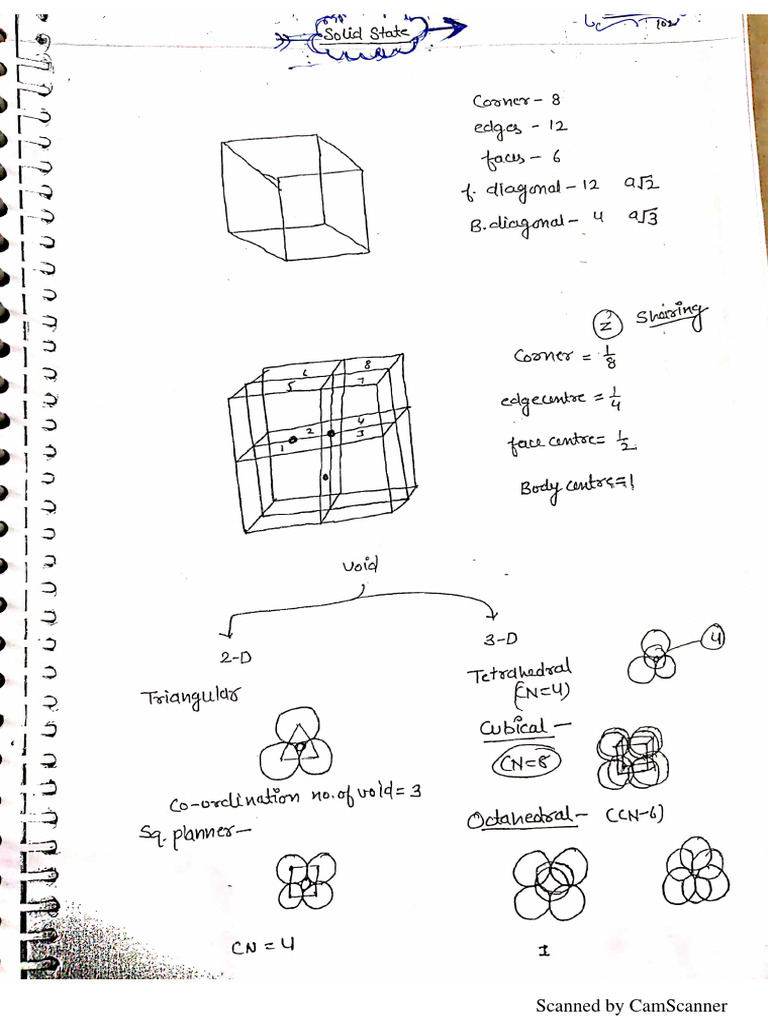 Solid State
102
Corner - 8
edges - 12
faces - 6
f. diagonal - 12 a√2
B. diagonal - 4 a√3
Z Shairing
Corner = 1/8
edgecentre = 1/4
face centre = 1/2
Body centre = 1
6 8
5 7
2 4
1 3
void
2-D
3-D
Triangular
Tetrahedral
(CN=4)
4
Cubical -
CN=8
Co-ordination no. of void = 3
Sq. planner -
Octahedral - (CN-6)
CN = 4
1
Scanned by CamScanner